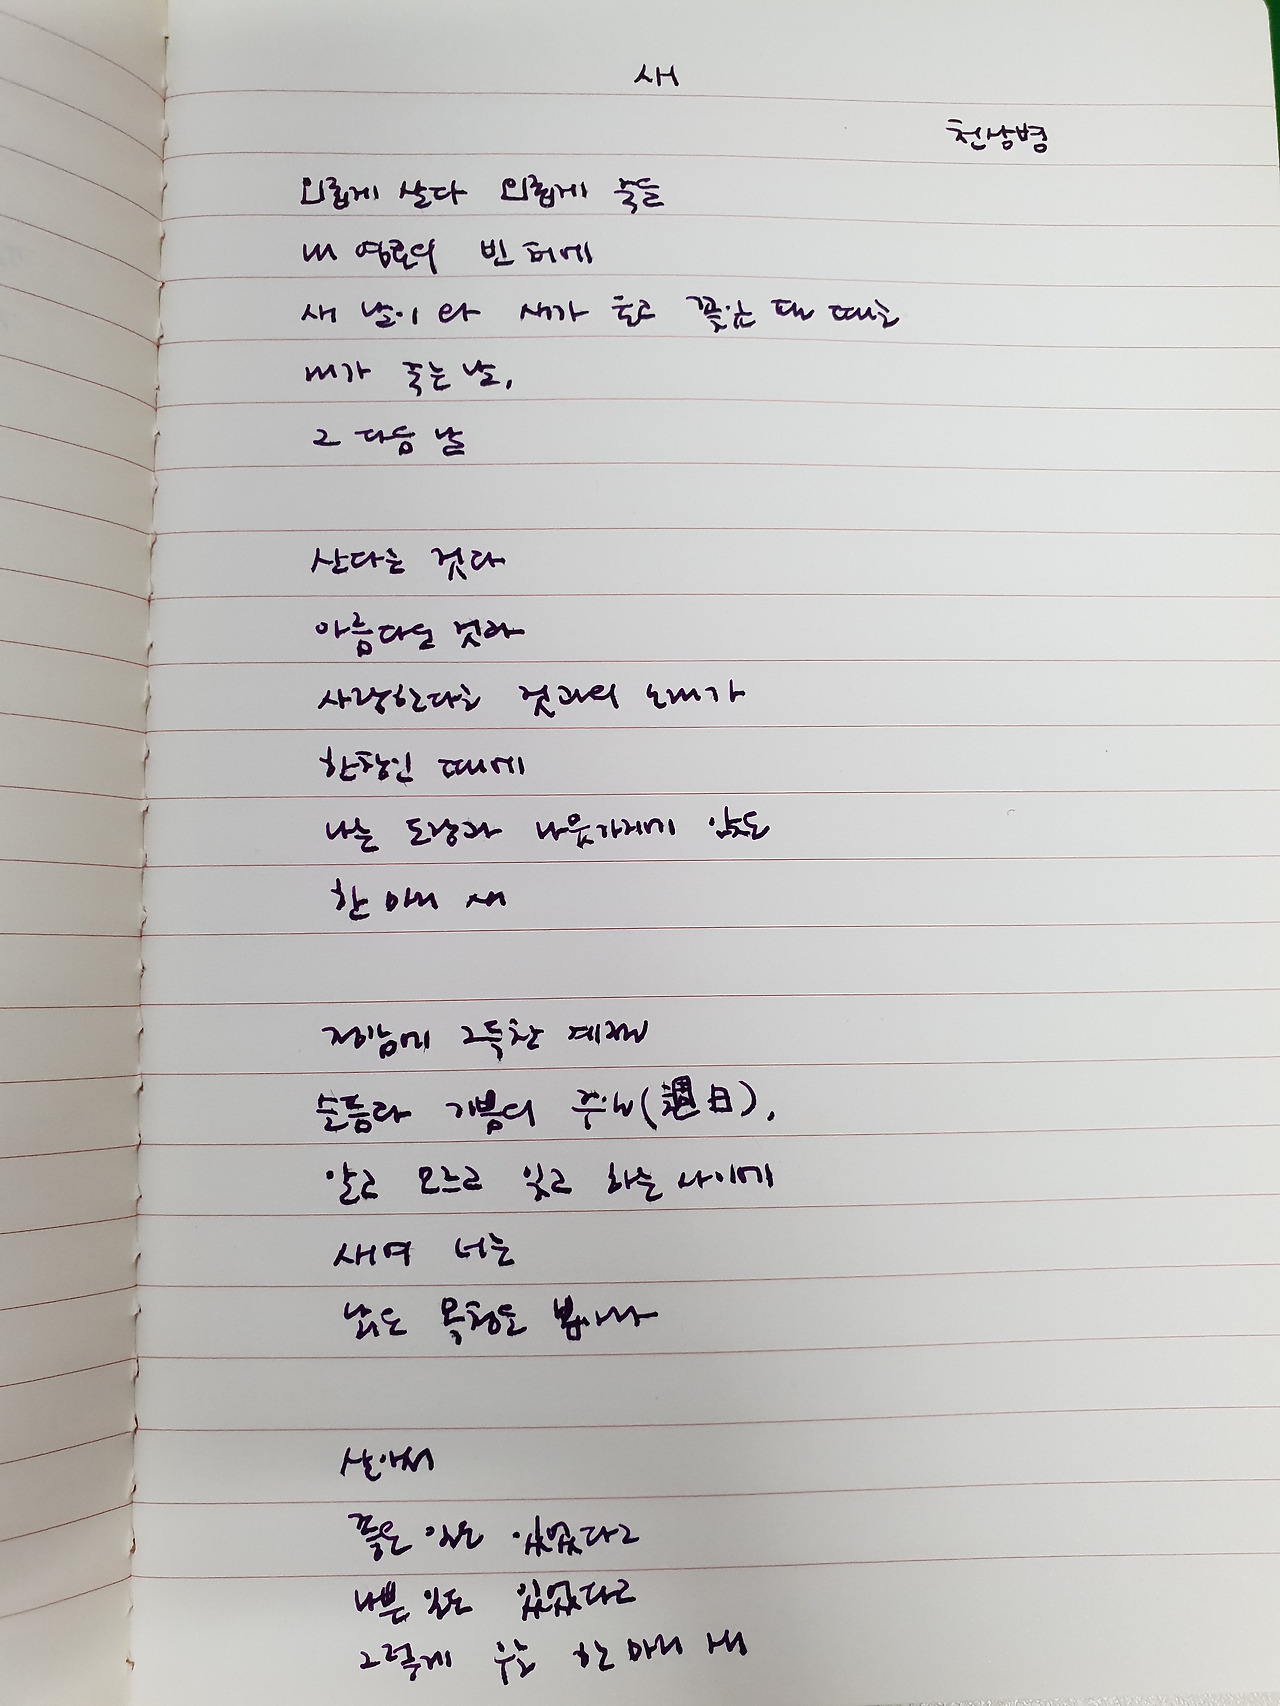 새
천상병
외롭게 살다 외롭게 죽을
내 영혼의 빈 터에
새 날이 와 새가 울고 꽃잎 필 때는
내가 죽는 날,
그 다음 날
산다는 것과
아름다운 것과
사랑한다는 것과의 노래가
한창인 때에
나는 도랑과 나뭇가지에 앉은
한 마리 새
정감에 그득찬 계절
슬픔과 기쁨의 주일(週日),
알고 모르고 잊고 하는 사이에
새여 너는
낡은 목청을 뽑아라
살아서
좋은 일도 있었다고
나쁜 일도 있었다고
그렇게 우는 한 마리 새